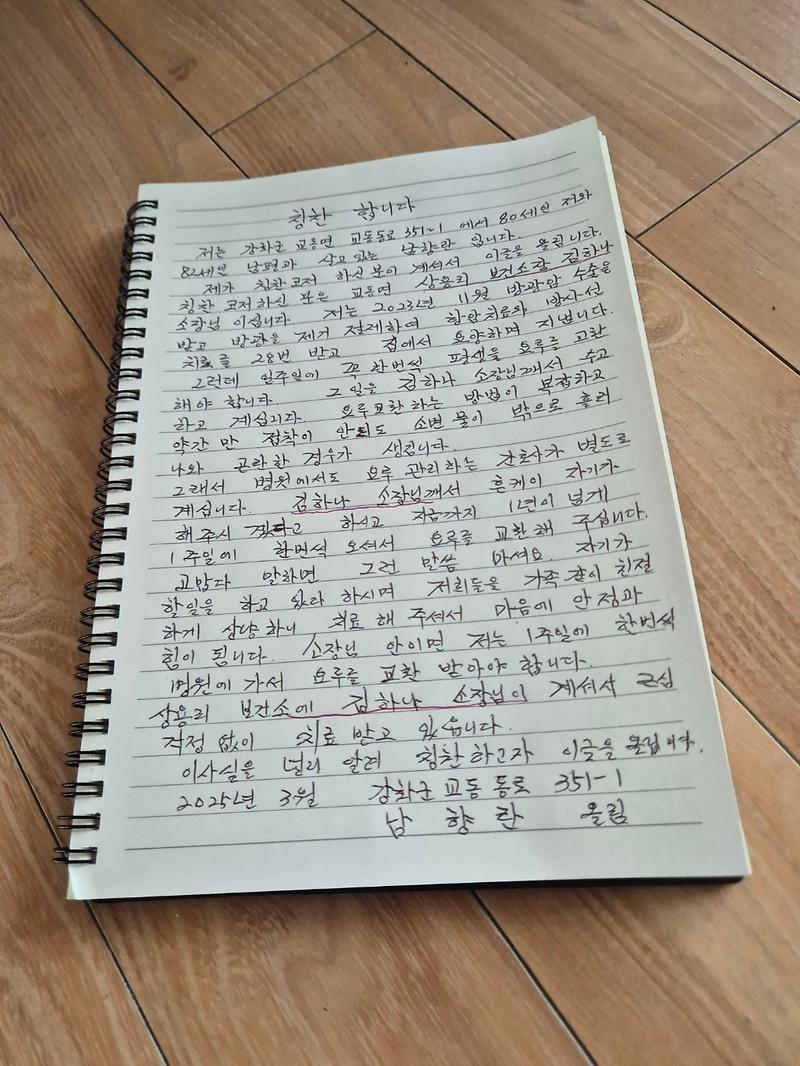 칭찬 합니다
저는 강화군 교동면 교동동로 351-1 에서 80세인 저와
82세인 남편과 살고 있는 남향란 입니다.
제가 칭찬코저 하신 분이 계셔서 이글을 올립니다.
칭찬 코저하신 분은 교동면 상용리 보건소장 김하나
소장님 이십니다. 저는 2023년 11월 방광암 수술을
받고 방광을 제거 절제하여 항암치료와 방사선
치료를 28번 받고 집에서 요양하며 지냅니다.
그런데 일주일에 꼭 한번씩 평생을 요루를 교환
해야 합니다. 그 일을 김하나 소장님께서 수고
하고 계십니다. 요루교환 하는 방법이 복잡하고
약간만 접착이 안되도 소변 물이 밖으로 흘러
나와 곤란한 경우가 생깁니다.
그래서 병원에서도 요루 관리하는 간호사가 별도로
계십니다. 김하나 소장님께서 흔케이 자기가
해주시겠다고 하시고 지금까지 1년이 넘게
1주일에 한번씩 오셔서 요루를 교환해 주십니다.
고맙다 말하면 그런 말씀 마셔요. 자기가
할일을 하고 있다 하시며 저희들을 가족 같이 친절
하게 상냥하니 치료 해 주셔서 마음에 안정과
힘이 됩니다. 소장님 안이면 저는 1주일에 한번씩
병원에 가서 요루를 교환 받아야 합니다.
상용리 보건소에 김하나 소장님이 계셔서 근심
걱정 없이 치료 받고 있읍니다.
이사실을 널리 알려 칭찬하고자 이글을 올립니다.
2025년 3월 강화군 교동 동로 351-1
남 향 란 올림